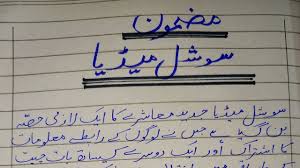 مضمون
سوشل میڈیا
سوشل میڈیا جدید معاشرے کا ایک لازمی حصہ
بن گیا ہے جس نے لوگوں کے رابطے معلومات
کا اشتراک اور ایک دوسرے کیساتھ بات چیت